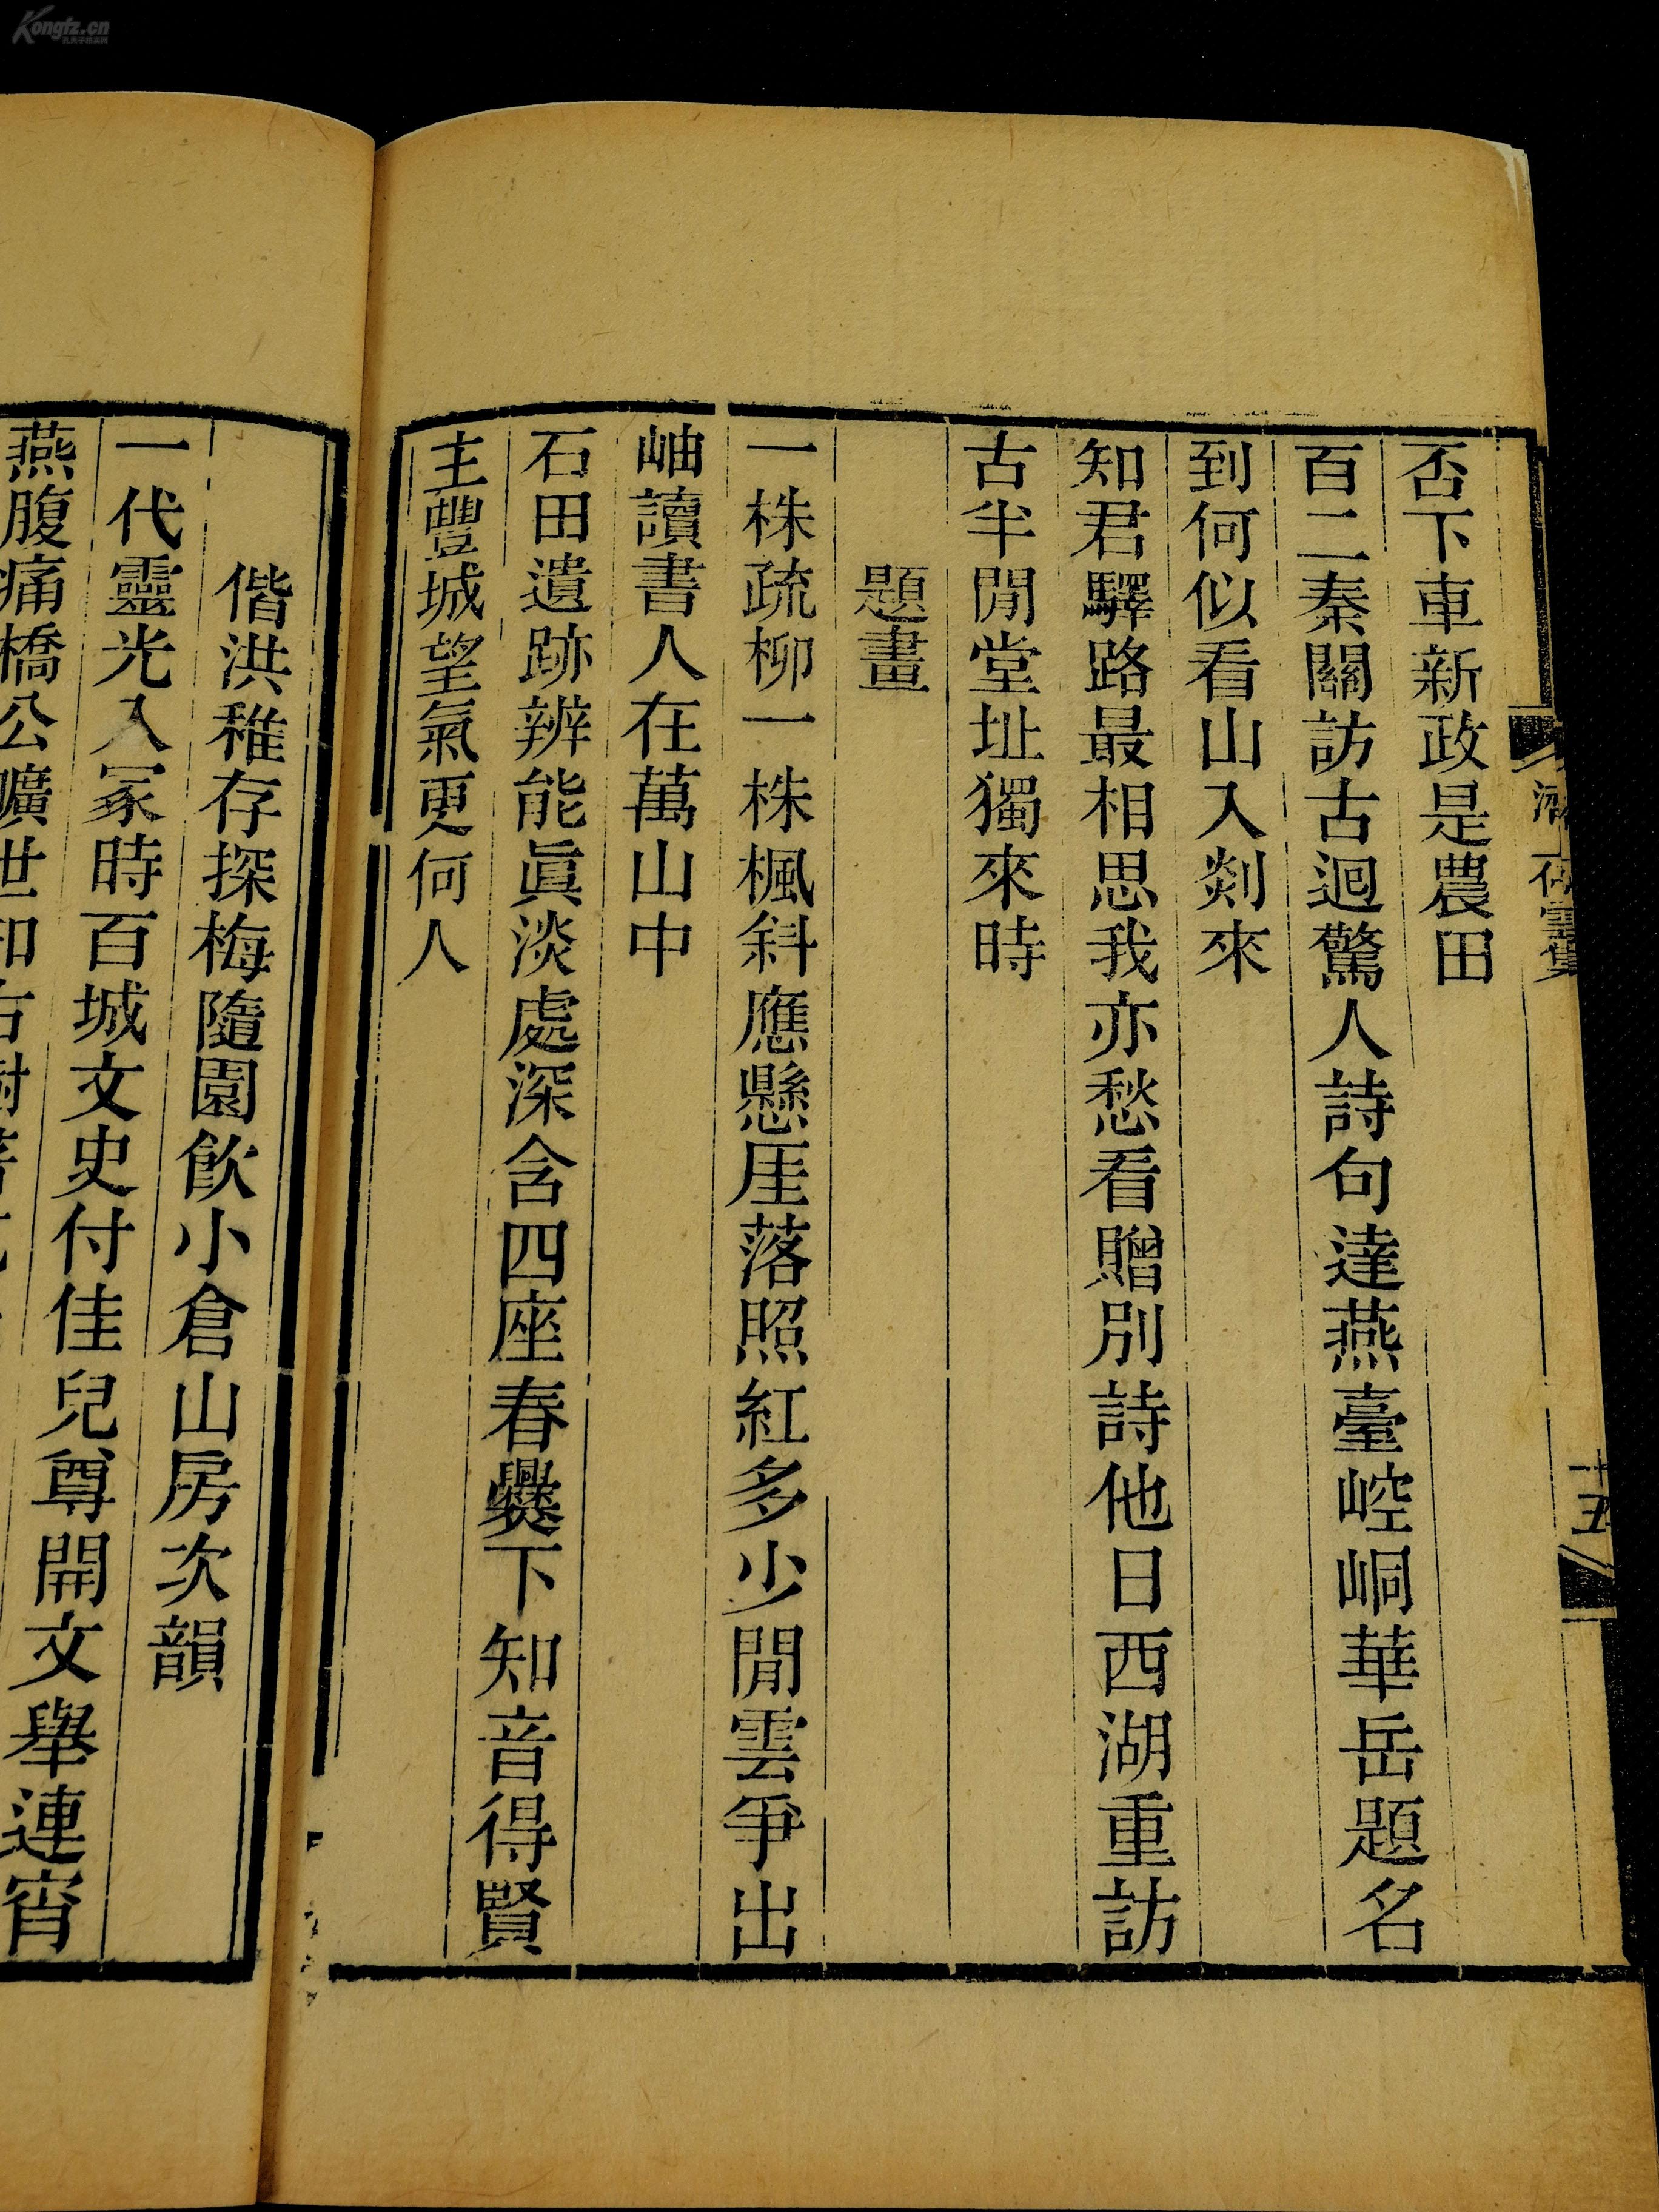 否下車新政是農田
百二秦關訪古迴驚人詩句達燕臺崆峒華岳題名
到何似看山入剡來
知君驛路最相思我亦愁看贈別詩他日西湖重訪
古半閒堂址獨來時
題畫
一株疏柳一株楓斜應懸厓落照紅多少閒雲爭出
岫讀書人在萬山中
石田遺跡辨能眞淡處深含四座春爨下知音得賢
主豐城望氣更何人
偕洪稚存探梅隨園飲小倉山房次韻
一代靈光入冢時百城文史付佳兒尊開文舉連宵
燕腹痛橋公曠世知
十五
Kongfz.cn